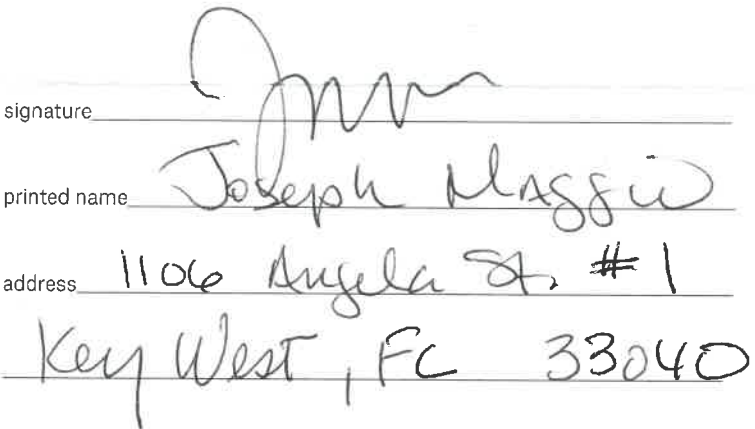 signature
printed name Joseph Maggio
address 1106 Angela St. #1
Key West, FL 33040